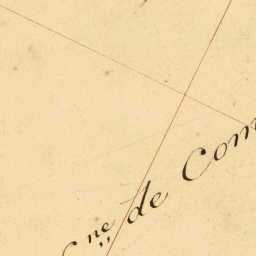 ne de Com